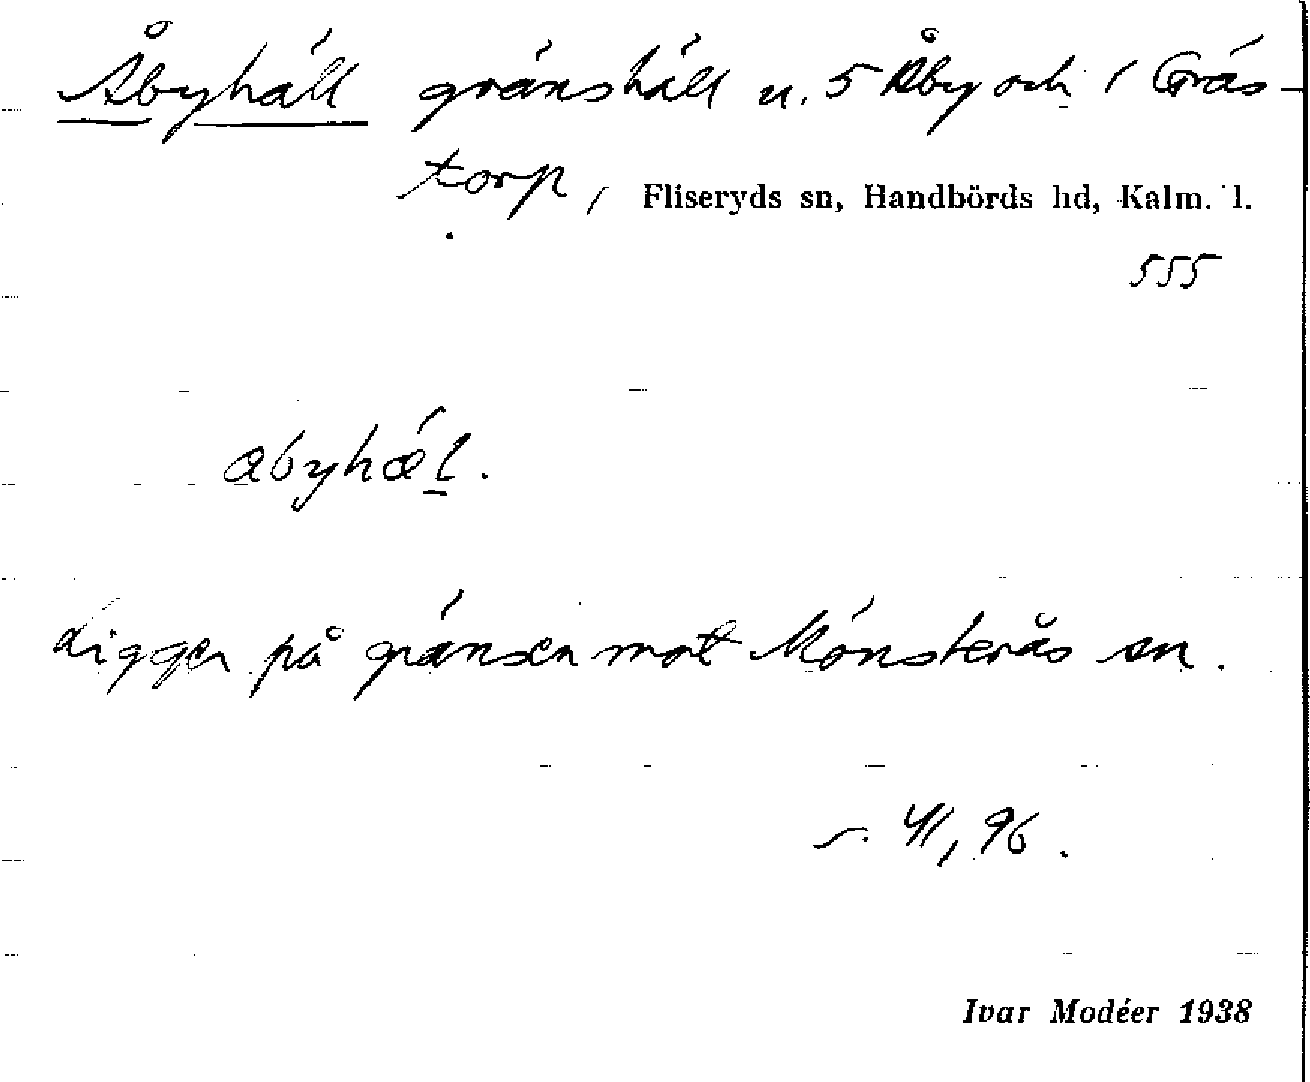 Åbyhäll gränshäll u. 5 Åby och 1 Gräs-
torp, Fliseryds sn, Handbörds hd, Kalm. l.
555
abyhæl.
Ligger på gränsen mot Mönsterås sn.
s. 41, 96.
Ivar Modéer 1938